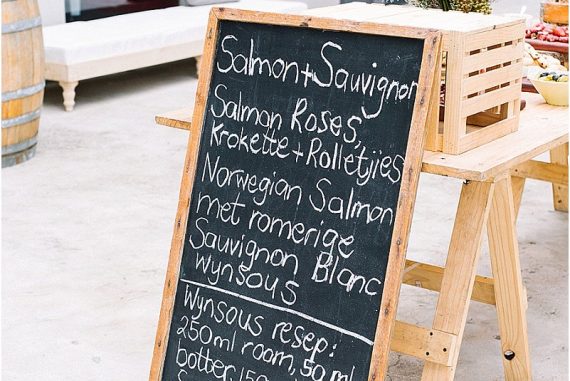 Salmon + Sauvignon
Salmon Roses,
Krokette + Rolletjies
Norwegian Salmon
met romerige
Sauvignon Blanc
Wynsous
Wynsous resep:
250ml room, 50ml
botter, 150ml